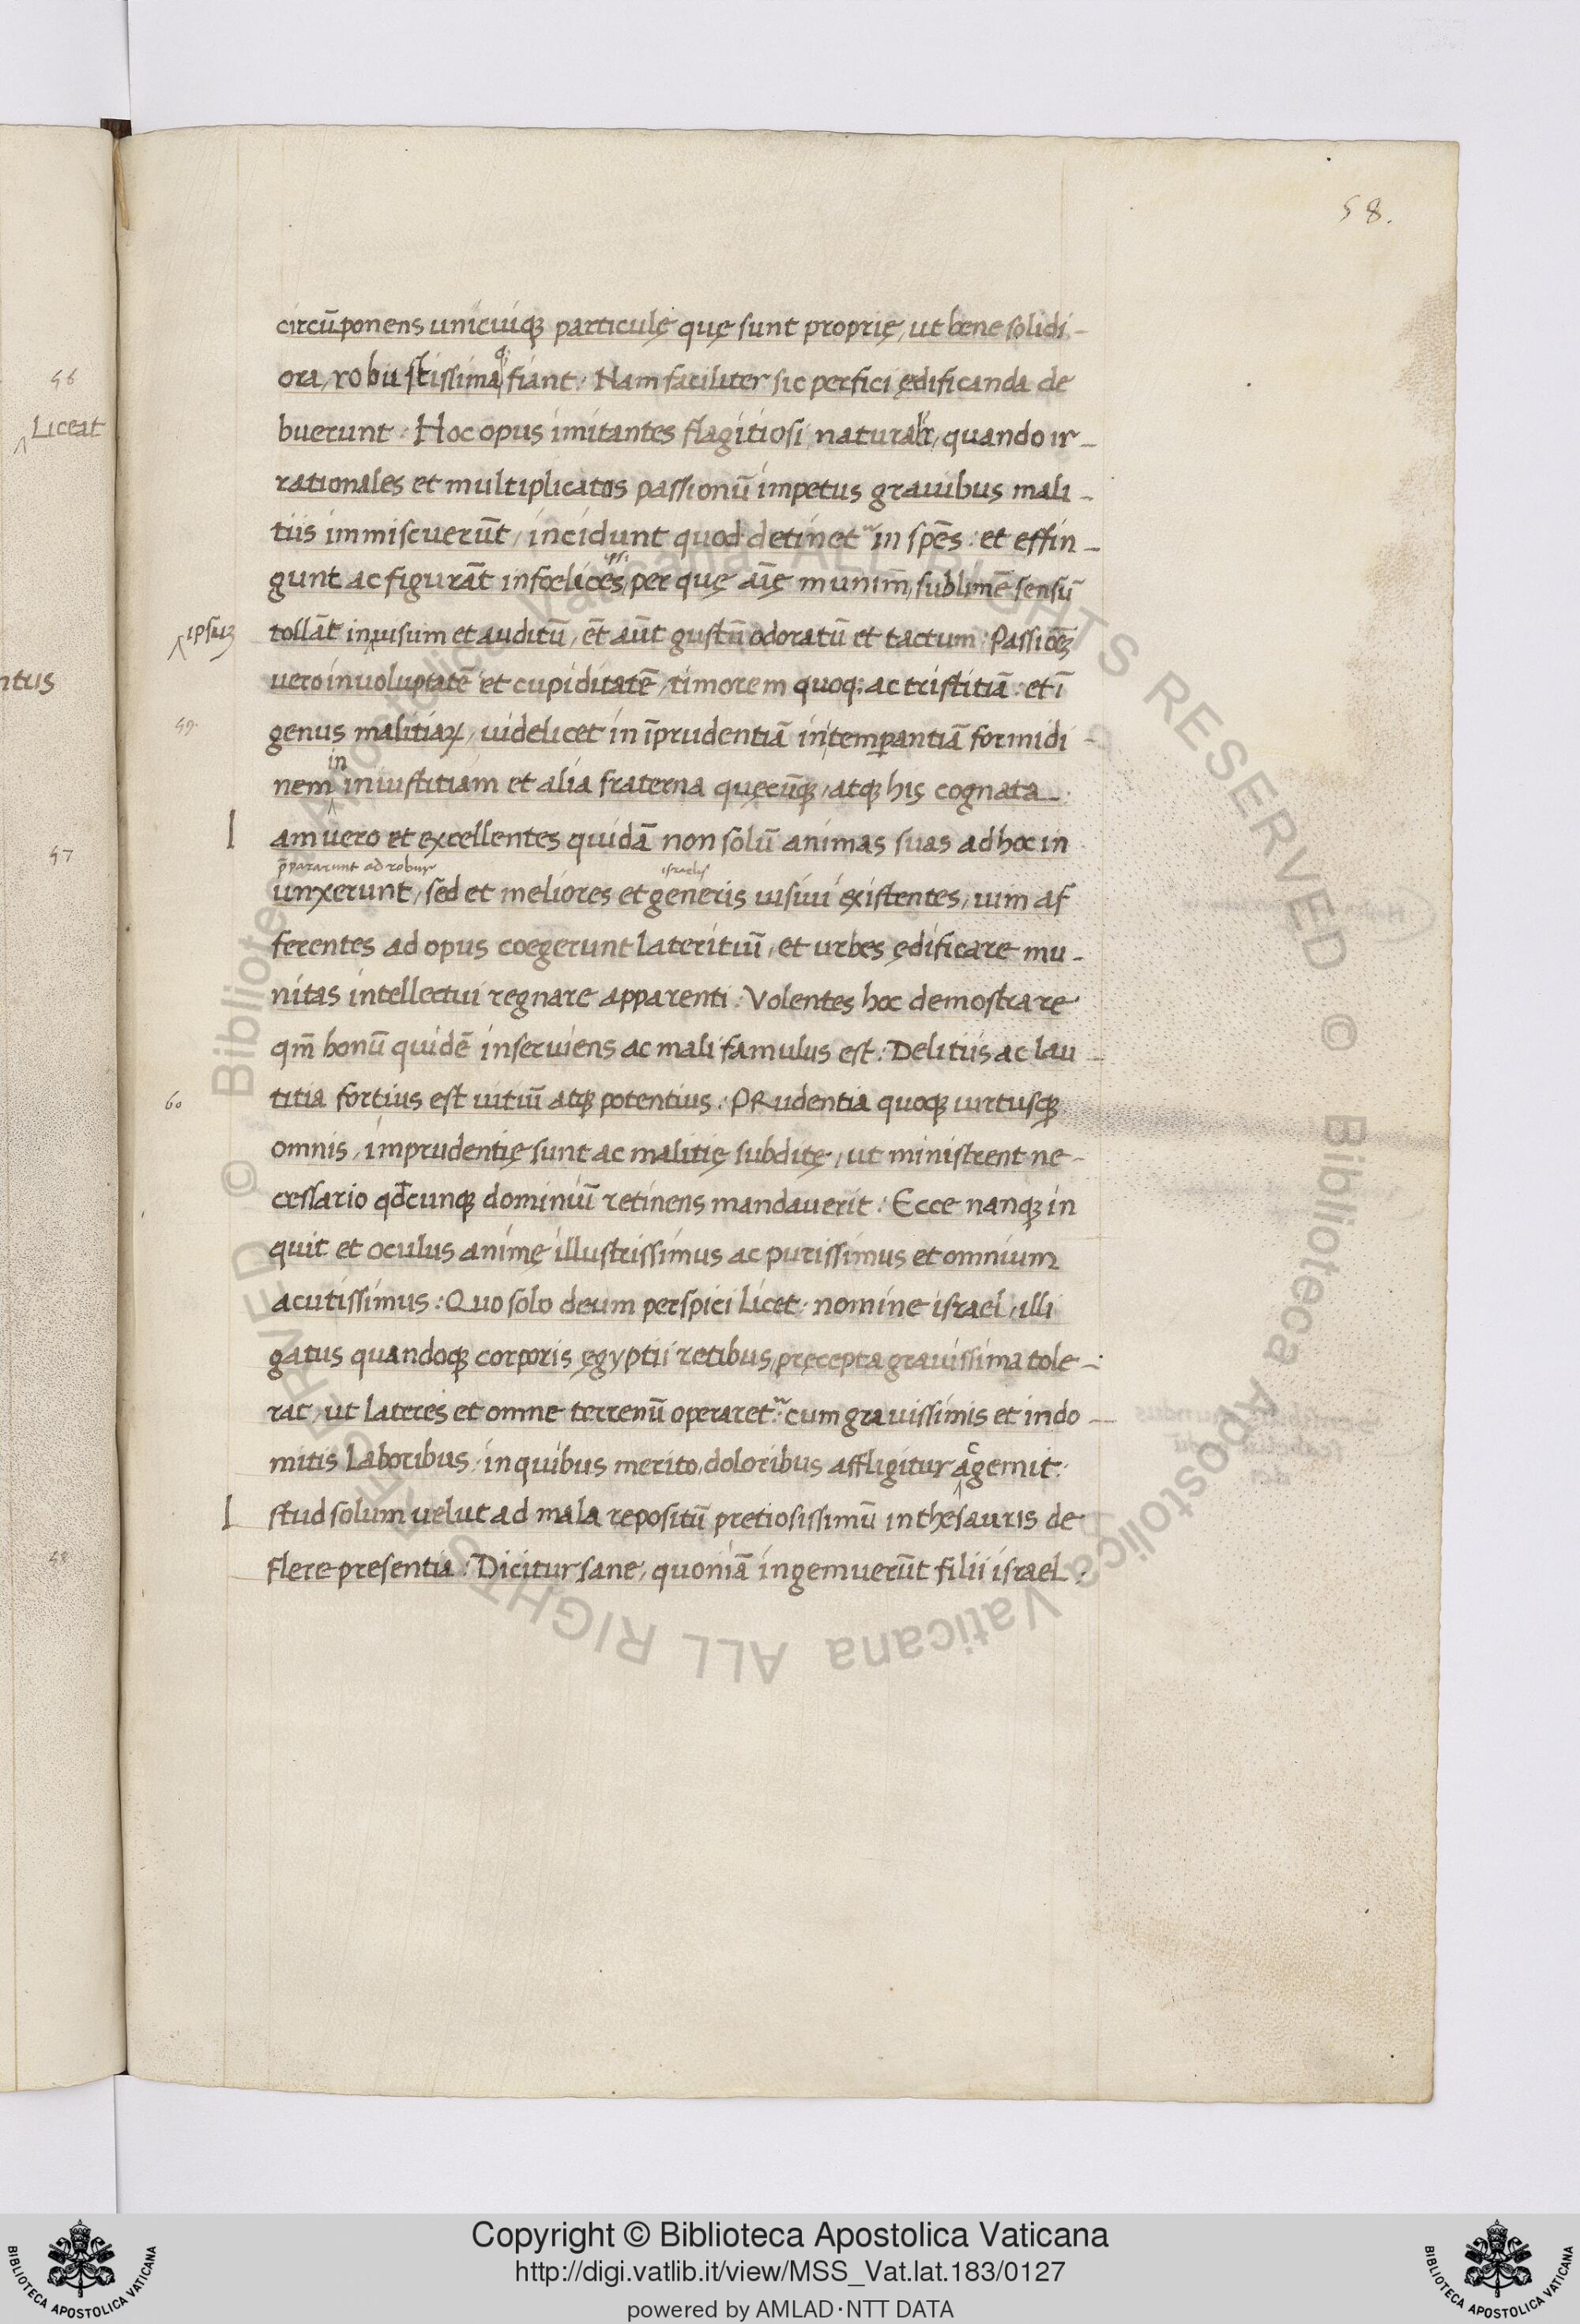 58.
circūponens unicuiqꝫ particulę quę sunt proprię, ut bene solidi-
ora, robustissimaqꝫ fiant. Nam faciliter sic perfici ędificanda de
buerunt. Hoc opus imitantes flagitiosi naturalr̄, quando ir-
rationales et multiplicatos passionū impetus grauibus mali-
tiis immiscuerūt, incidunt quod detinet in spēs: et effin-
gunt ac figurāt infoelices ipsi, per quę aīę munim̄, sublimē sensū
ipsuꝫ
tollāt in uisum et auditū, ēt aūt gustū odoratū et tactum. Passiōeꝫ
uero in uoluptatē et cupiditatē, timorem quoq; ac tristitiā: et ī
59.
genus malitiaꝝ, uidelicet in īprudentiā in temperantiā formidi-
nem in iniustitiam et alia fraterna quęcūqꝫ, atqꝫ his cognata.
I am uero et excellentes quidā non solū animas suas ad hoc in
p̄pararunt ad robur israelis
unxerunt, sed et meliores et generis uisiui existentes, uim af
ferentes ad opus coegerunt lateritiū, et urbes ędificare mu-
nitas intellectui regnare apparenti. Volentes hoc demostrare
qm̄ bonū quidē inseruiens ac mali famulus est. Delitiis ac lau-
60
titia fortius est uitiū atqꝫ potentius. PRudentia quoqꝫ uirtusqꝫ
omnis, imprudentię sunt ac malitię subditę, ut ministrent ne-
cessario qd̄cunqꝫ dominiū retinens mandauerit. Ecce nanqꝫ in
quit et oculus animę illustrissimus ac purissimus et omnium
acutissimus. Quo solo deum perspici licet. nomine israel, illi
gatus quandoqꝫ corporis ęgyptii retibus, pręcepta grauissima tole-
rat, ut lateres et omne terrenū operaret cum grauissimis et indo-
mitis laboribus, in quibus merito, doloribus affligitur ac gemit.
I stud solum uelut ad mala repositū pretiosissimū in thesauris de
flere presentia. Dicitur sane, quoniā ingemuerūt filii israel.
56
Liceat
ntus
57
58
© Biblioteca Apostolica Vaticana ALL RIGHTS RESERVED © Biblioteca Apostolica Vaticana ALL RIGHTS RESERVED
Copyright © Biblioteca Apostolica Vaticana
http://digi.vatlib.it/view/MSS_Vat.lat.183/0127
powered by AMLAD·NTT DATA
BIBLIOTECA APOSTOLICA VATICANA
BIBLIOTECA APOSTOLICA VATICANA